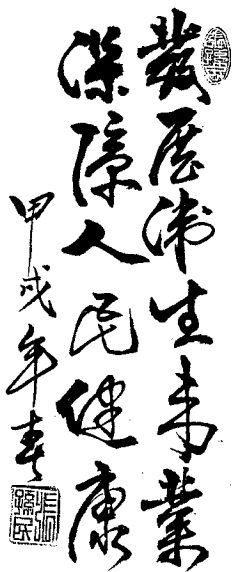 發展衛生事業
保障人民健康
甲戌年春